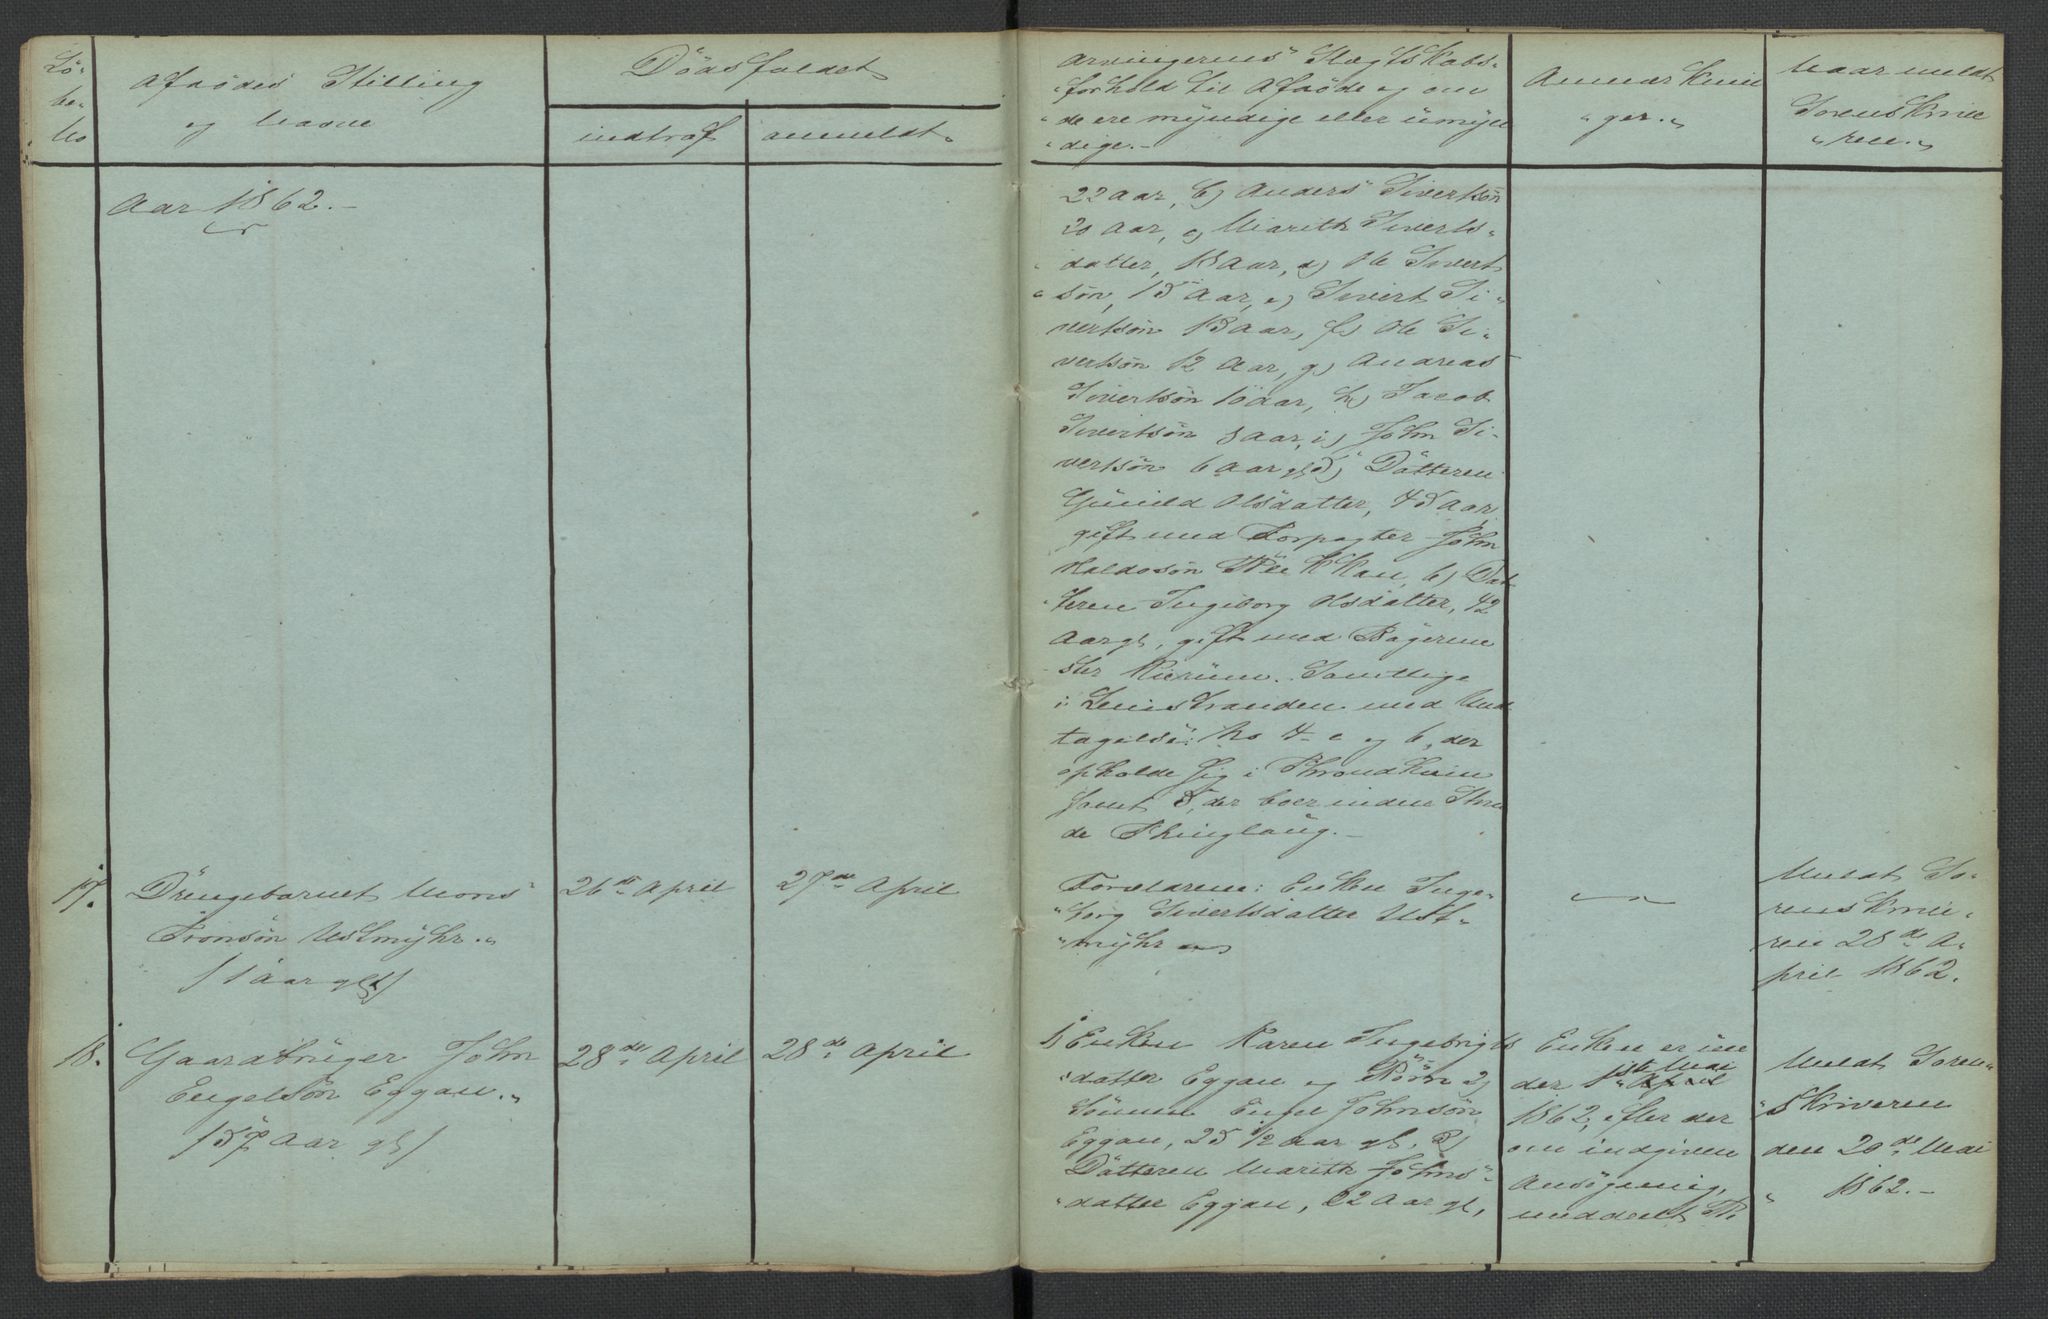 Lö-
be-
No
Afdödes Stilling
og Navne
Dödsfaldet
indtraf
anmeldt
Arvingernes Slægtskabs-
forhold til Afdöde og om
de ere myndige eller umyn
dige.-
Anmærknin
ger.
Naar meldt
Sorenskrive
ren.
Aar 1862.-
22 Aar, b) Anders Sivertsön
20 Aar, c) Marith Siverts-
datter, 18 Aar, d) Ole Sivert
sön, 15 Aar, e) Sivert Si-
vertsön 13 Aar, f) Ole Si-
vertsön 12 Aar, g) Andreas
Sivertsön 10 Aar, h) Jacob
Sivertsön 8 Aar, i) John Si-
vertsön 6 Aar gl. 5) Datteren
Gunild Olsdatter, 45 Aar
gift med Forpagter John
Haldosön, 6) Dat
teren Ingeborg Olsdatter, 42
Aar gl, gift med Bögerme
ster. Samtlige
i Leinstranden med Und
tagelse: No 4 c og 6, der
opholde sig i Throndhiem
samt 5, der boer inden Strin
de Thinglaug.-
17.
Drengebarnet Mons
Tronsön Ustmyhr.
/1 Aar gl/
26de April
27de April
Forældrene: Enken Inge-
borg Sivertsdatter Ust-
myhr
Meldt So-
renskrive-
ren 28de A-
pril 1862.
18.
Gaardbruger John
Engelsön Eggan.
/57 Aar gl/
28de April
28de April
1) Enken Karen Ingebrigts
datter Eggan og Börn 2)
Sönnen Engel Johnsön
Eggan, 25 1/2 Aar gl. 3)
Datteren Marith Johns-
datter Eggan, 22 Aar gl,
Enken er un
der 1ste Mai
1862, efter der
om indgiven
Ansögning,
meddeelt Be
Meldt Soren-
skriveren
den 20de Mai
1862.-